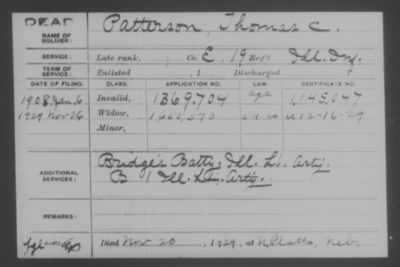 DEAD
NAME OF SOLDIER: Patterson, Thomas C.
SERVICE: Late rank, Co. E, 19 Reg't Ill. Inf.
TERM OF SERVICE: Enlisted , 1 Discharged , 1
DATE OF FILING. CLASS. APPLICATION NO. LAW. CERTIFICATE NO.
1908 Jan. 6 Invalid, 1369,704 age 1145,047
1929 Nov 26 Widow, 12-16-29
Minor,
ADDITIONAL SERVICES: Bridges Batty. Ill. Lt. Arty.
B 1 Ill. Lt. Arty.
REMARKS:
Died Nov 20, 1929, at N. Platte, Neb.